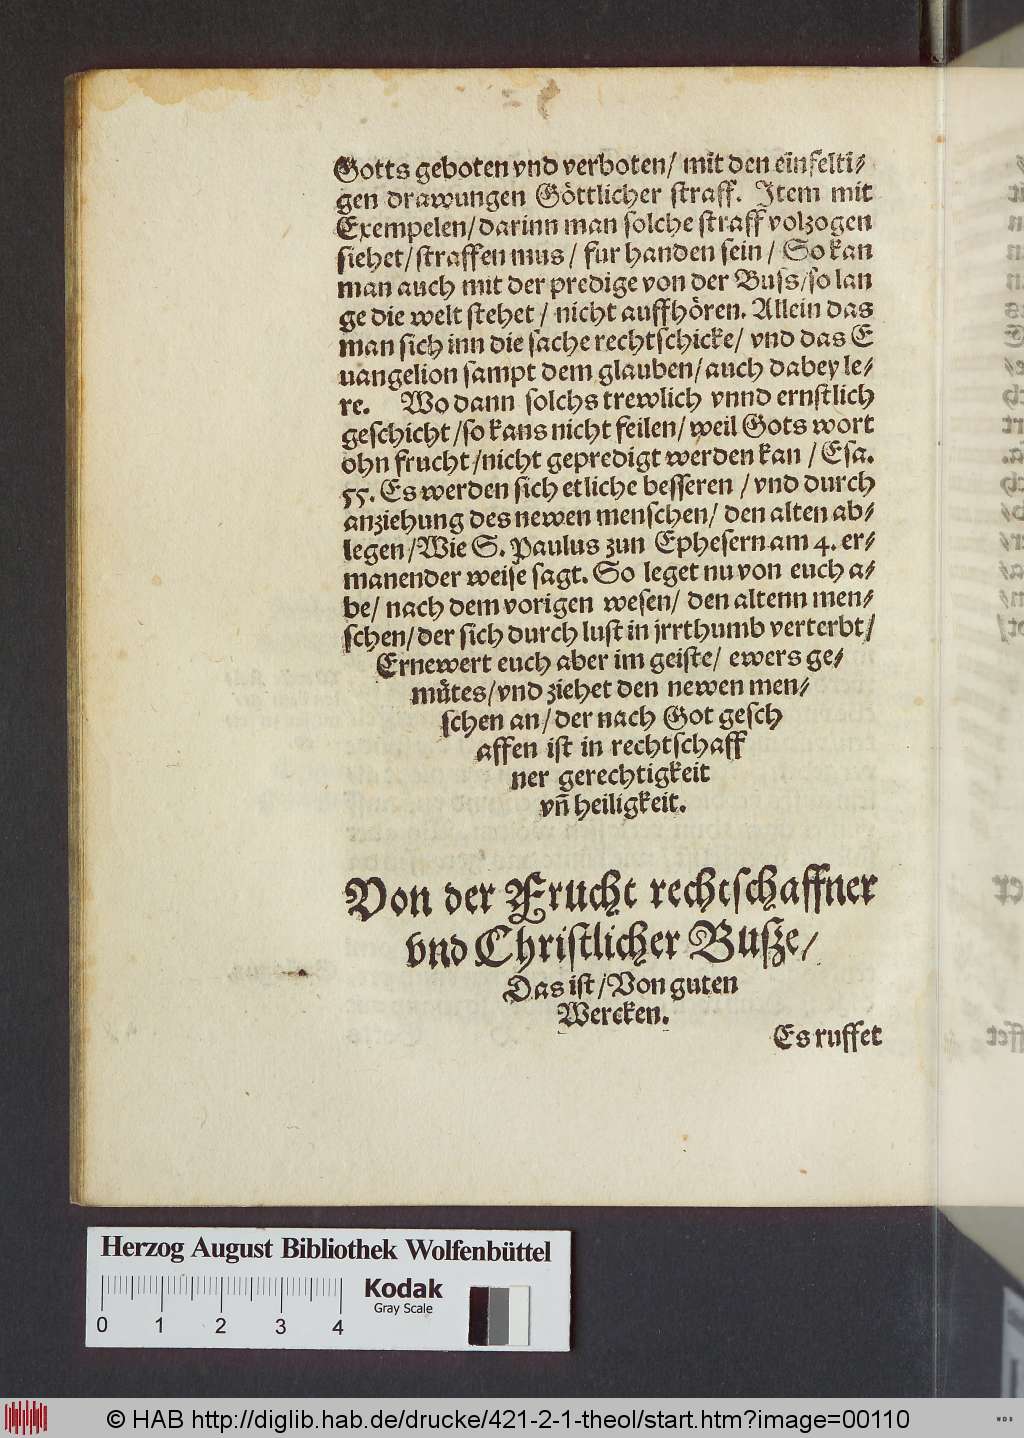 Gotts geboten vnd verboten/ mit den einfelti/
gen drawungen Göttlicher straff. Item mit
Exempelen/ darinn man solche straff volzogen
siehet/ straffen mus/ fur handen sein/ So kan
man auch mit der predige von der Buss/ so lan
ge die welt stehet/ nicht auffhören. Allein das
man sich inn die sache recht schicke/ vnd das E
uangelion sampt dem glauben/ auch dabey le/
re. Wo dann solchs trewlich vnnd ernstlich
geschicht/ so kans nicht feilen/ weil Gots wort
ohn frucht/ nicht gepredigt werden kan/ Esa.
55. Es werden sich etliche besseren/ vnd durch
anziehung des newen menschen/ den alten ab/
legen/ Wie S. Paulus zun Ephesern am 4. er/
manender weise sagt. So leget nu von euch a/
be/ nach dem vorigen wesen/ den altenn men/
schen/ der sich durch lust in jrrthumb verterbt/
Ernewert euch aber im geiste/ ewers ge/
mütes/ vnd ziehet den newen men/
schen an/ der nach Got gesch
affen ist in rechtschaff
ner gerechtigkeit
vñ heiligkeit.
Von der Frucht rechtschaffner
vnd Christlicher Busze/
Das ist/ Von guten
Wercken.
Es ruffet
Herzog August Bibliothek Wolfenbüttel
Kodak
Gray Scale
0 1 2 3 4
© HAB http://diglib.hab.de/drucke/421-2-1-theol/start.htm?image=00110